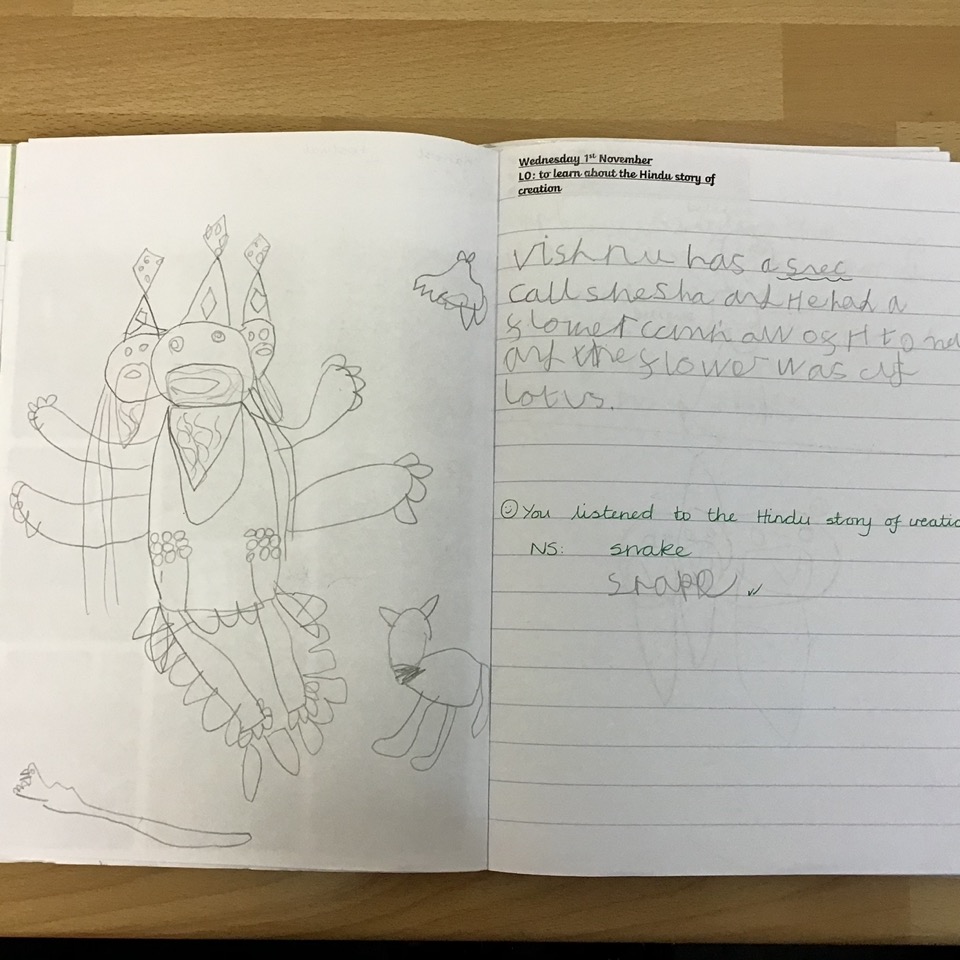 Wednesday 1st November
LO: to learn about the Hindu story of
creation
Vishnu has a snec
call shesha and He had a
flower
and the flower was
lotus.
You listened to the Hindu story of creatio
NS: snake
snake